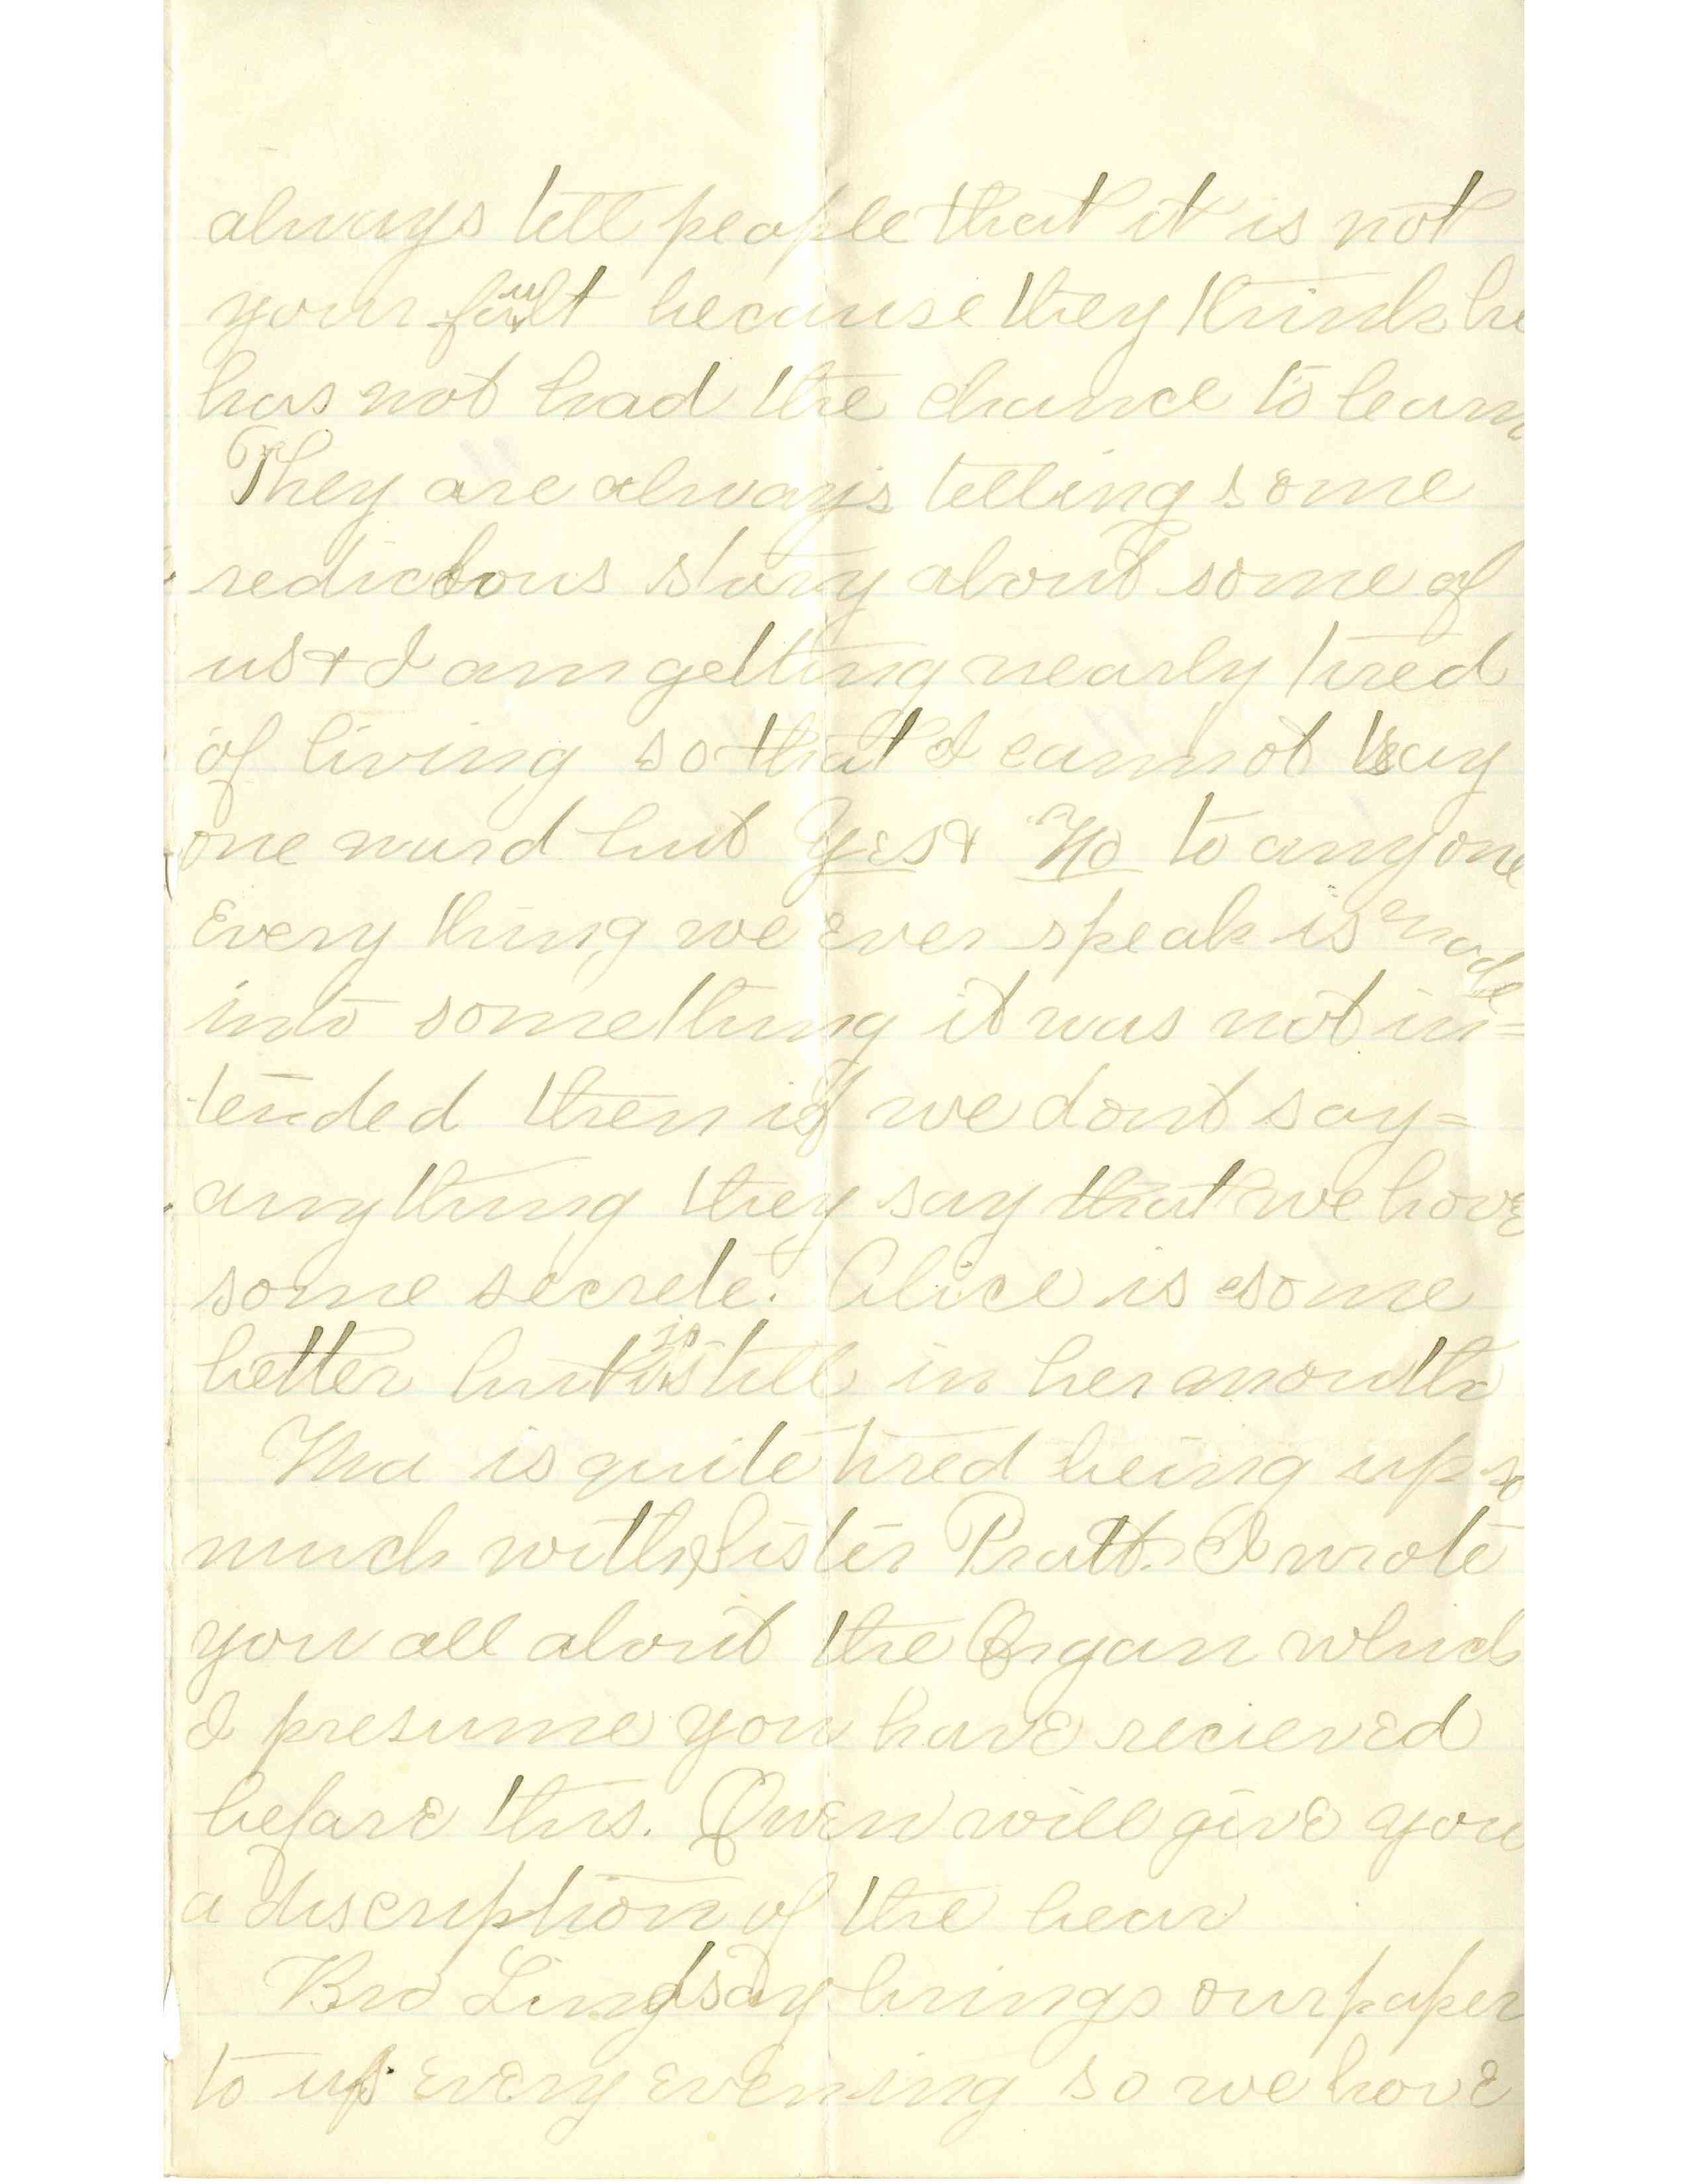 always tell people that it is not
your fault because they think he
has not had the chance to learn
They are always telling some
rediculous story about some of
us & I am getting nearly tired
of living so that I cannot say
one word but Yes & No to anyone
Every thing we ever speak is made
into something it was not in=
tended then if we dont say=
anything they say that we have
some secrete. Alice is some
better but is still in her mouth
Ma is quite tired being up so
much with Sister Pratt. I wrote
you all about the Organ which
I presume you have recieved
before this. Owen will give you
a discription of the bear
Bro Lindsay brings our paper
to us every evening so we have